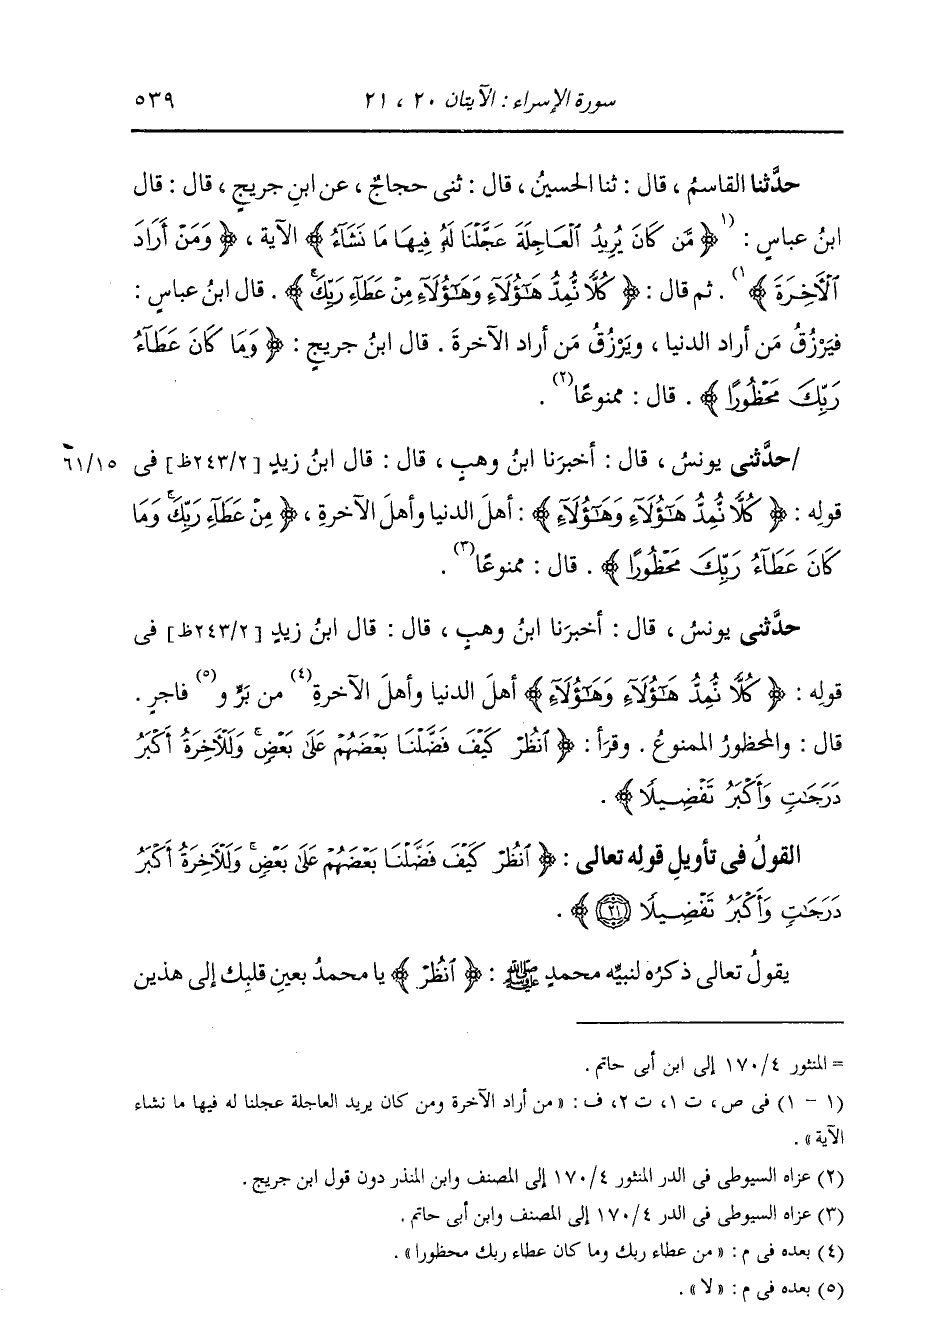 سورة الإسراء : الآيتان ٢٠ ، ٢١ ٥٣٩
حدَّثنا القاسمُ ، قال : ثنا الحسينُ ، قال : ثنى حجاجٌ ، عن ابنِ جريجٍ ، قال : قال
ابنُ عباسٍ : (١﴿ مَّن كَانَ يُرِيدُ ٱلْعَاجِلَةَ عَجَّلْنَا لَهُ فِيهَا مَا نَشَآءُ ﴾ الآية ، ﴿ وَمَنْ أَرَادَ
ٱلْآخِرَةَ ﴾١) . ثم قال : ﴿ كُلًّا نُّمِدُّ هَٰٓؤُلَآءِ وَهَٰٓؤُلَآءِ مِنْ عَطَآءِ رَبِّكَ ۚ ﴾ . قال ابنُ عباسٍ :
فيَرْزُقُ مَن أراد الدنيا ، ويَرْزُقُ مَن أراد الآخرةَ . قال ابنُ جريجٍ : ﴿ وَمَا كَانَ عَطَآءُ
رَبِّكَ مَحْظُورًا ﴾ . قال : ممنوعًا(٢) .
/حدَّثنى يونسُ ، قال : أخبرَنا ابنُ وهبٍ ، قال : قال ابنُ زيدٍ [٢٤٣/٢ظ] فى ٦١/١٥
قولِه : ﴿ كُلًّا نُّمِدُّ هَٰٓؤُلَآءِ وَهَٰٓؤُلَآءِ ﴾ : أهلَ الدنيا وأهلَ الآخرةِ ، ﴿ مِنْ عَطَآءِ رَبِّكَ ۚ وَمَا
كَانَ عَطَآءُ رَبِّكَ مَحْظُورًا ﴾ . قال : ممنوعًا(٣) .
حدَّثنى يونسُ ، قال : أخبرَنا ابنُ وهبٍ ، قال : قال ابنُ زيدٍ [٢٤٣/٢ظ] فى
قولِه : ﴿ كُلًّا نُّمِدُّ هَٰٓؤُلَآءِ وَهَٰٓؤُلَآءِ ﴾ أهلَ الدنيا وأهلَ الآخرةِ(٤) من بَرٍّ و(٥) فاجرٍ .
قال : والمحظورُ الممنوعُ . وقرَأ : ﴿ ٱنظُرْ كَيْفَ فَضَّلْنَا بَعْضَهُمْ عَلَىٰ بَعْضٍ ۚ وَلَلْآخِرَةُ أَكْبَرُ
دَرَجَٰتٍ وَأَكْبَرُ تَفْضِيلًا ﴾ .
القولُ فى تأويلِ قولِه تعالى : ﴿ ٱنظُرْ كَيْفَ فَضَّلْنَا بَعْضَهُمْ عَلَىٰ بَعْضٍ ۚ وَلَلْآخِرَةُ أَكْبَرُ
دَرَجَٰتٍ وَأَكْبَرُ تَفْضِيلًا ٢١ ﴾ .
يقولُ تعالى ذكرُه لنبيِّه محمدٍ ﷺ : ﴿ ٱنظُرْ ﴾ يا محمدُ بعينِ قلبِك إلى هذين
= المنثور ١٧٠/٤ إلى ابن أبى حاتم .
(١ - ١) فى ص ، ت ١، ت ٢، ف : « من أراد الآخرة ومن كان يريد العاجلة عجلنا له فيها ما نشاء
الآية » .
(٢) عزاه السيوطى فى الدر المنثور ١٧٠/٤ إلى المصنف وابن المنذر دون قول ابن جريج .
(٣) عزاه السيوطى فى الدر ١٧٠/٤ إلى المصنف وابن أبى حاتم .
(٤) بعده فى م : « من عطاء ربك وما كان عطاء ربك محظورا » .
(٥) بعده فى م : « لا » .